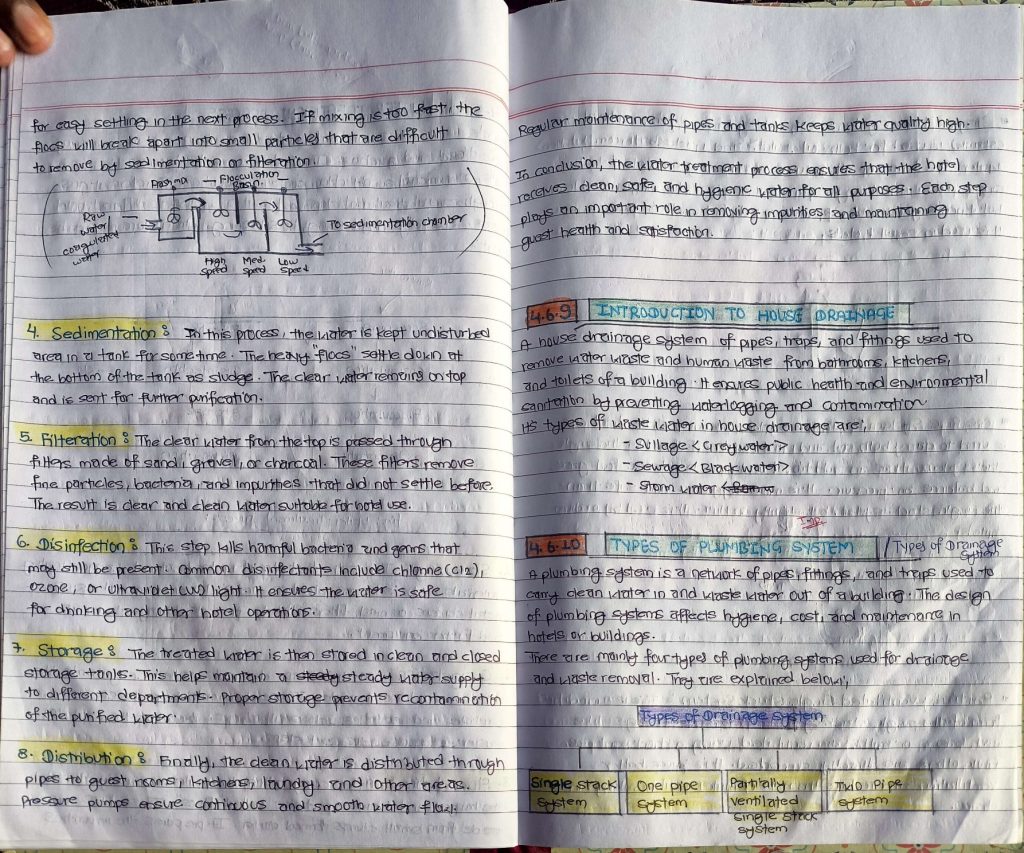 for easy settling in the next process. If mixing is too fast, the
flocs will break apart into small particles that are difficult
to remove by sedimentation or filteration.
Flash mix
Flocculation
Basin
Raw
water
coagulated
water
To sedimentation chamber
High
speed
Med.
speed
Low
speed
4. Sedimentation : In this process, the water is kept undisturbed
area in a tank for some time. The heavy "flocs" settle down at
the bottom of the tank as sludge. The clear water remains on top
and is sent for further purification.
5. Filteration : The clear water from the top is passed through
filters made of sand, gravel, or charcoal. These filters remove
fine particles, bacteria, and impurities that did not settle before.
The result is clear and clean water suitable for hotel use.
6. Disinfection : This step kills harmful bacteria and germs that
may still be present. Common disinfectants include chlorine (Cl2),
ozone, or ultraviolet (UV) light. It ensures the water is safe
for drinking and other hotel operations.
7. Storage : The treated water is then stored in clean and closed
storage tanks. This helps maintain a steady steady water supply
to different departments. Proper storage prevents recontamination
of the purified water.
8. Distribution : Finally, the clean water is distributed through
pipes to guest rooms, kitchens, laundry and other areas.
Pressure pumps ensure continuous and smooth water flow.
Regular maintenance of pipes and tanks keeps water quality high.
In conclusion, the water treatment process ensures that the hotel
receives clean, safe, and hygienic water for all purposes. Each step
plays an important role in removing impurities and maintaining
guest health and satisfaction.
4.6.9 INTRODUCTION TO HOUSE DRAINAGE
A house drainage system of pipes, traps, and fittings used to
remove water waste and human waste from bathrooms, kitchens,
and toilets of a building. It ensures public health and environmental
sanitation by preventing waterlogging and contamination
Its types of waste water in house drainage are;
- Sullage <Grey water>
- Sewage <Black water>
- Storm water
Imp
4.6.10 TYPES OF PLUMBING SYSTEM / Types of Drainage
system
A plumbing system is a network of pipes, fittings, and traps used to
carry clean water in and waste water out of a building. The design
of plumbing systems affects hygiene, cost, and maintenance in
hotels or buildings.
There are mainly four types of plumbing systems used for drainage
and waste removal. They are explained below;
Types of Drainage system
Single stack
system
One pipe
system
Partially
ventilated
single stack
system
Two pipe
system